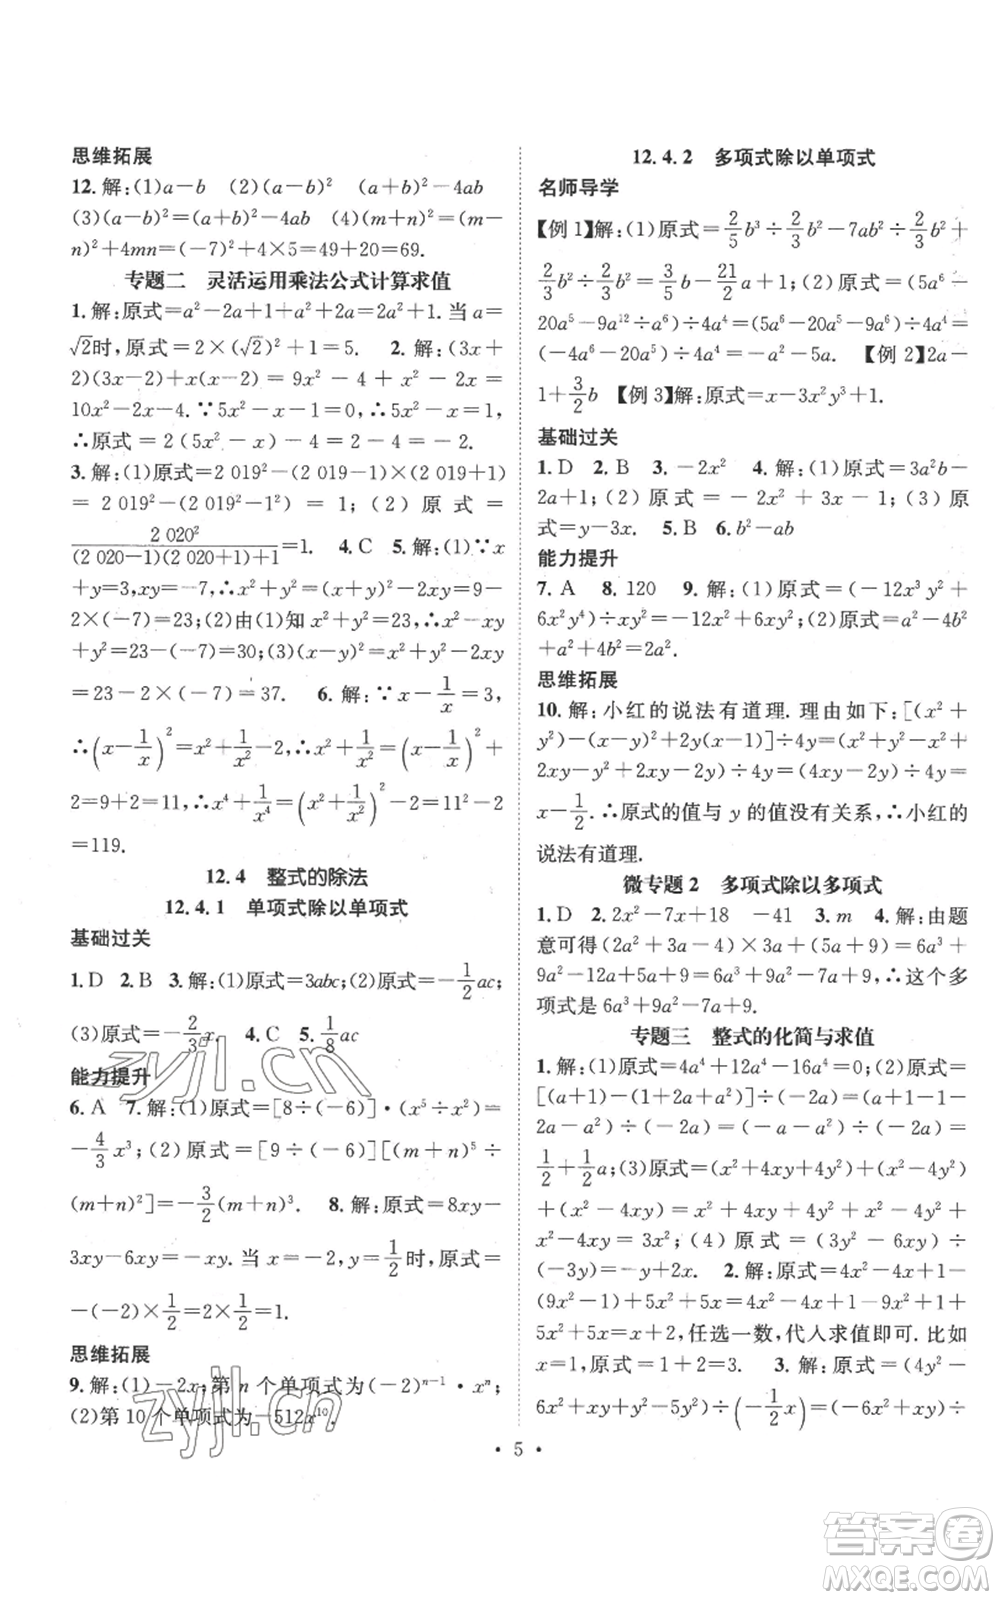 思维拓展
12.解:(1)a－b　(2)(a－b)²　(a＋b)²－4ab
(3)(a－b)²＝(a＋b)²－4ab　(4)(m＋n)²＝(m－
n)²＋4mn＝(－7)²＋4×5＝49＋20＝69.
专题二　灵活运用乘法公式计算求值
1.解:原式＝a²－2a＋1＋a²＋2a＝2a²＋1.当 a＝
√2时,原式＝2×(√2)²＋1＝5.　2.解:(3x＋
2)(3x－2)＋x(x－2)＝9x²－4＋x²－2x＝
10x²－2x－4.∵5x²－x－1＝0,∴5x²－x＝1,
∴原式＝2(5x²－x)－4＝2－4＝－2.
3.解:(1)原式＝2 019²－(2 019－1)×(2 019＋1)
＝2 019²－(2 019²－1²)＝1;(2)原式＝
2 020²/((2 020－1)(2 020＋1)＋1)＝1.　4.C　5.解:(1)∵x
＋y＝3,xy＝－7,∴x²＋y²＝(x＋y)²－2xy＝9－
2×(－7)＝23;(2)由(1)知 x²＋y²＝23,∴x²－xy
＋y²＝23－(－7)＝30;(3)(x－y)²＝x²＋y²－2xy
＝23－2×(－7)＝37.　6.解:∵x－1/x＝3,
∴(x－1/x)²＝x²＋1/x²－2,∴x²＋1/x²＝(x－1/x)²＋
2＝9＋2＝11,∴x⁴＋1/x⁴＝(x²＋1/x²)²－2＝11²－2
＝119.
12.4　整式的除法
12.4.1　单项式除以单项式
基础过关
1.D　2.B　3.解:(1)原式＝3abc;(2)原式＝－1/2ac;
(3)原式＝－2/3x.　4.C　5.1/8ac
能力提升
6.A　7.解:(1)原式＝[8÷(－6)]·(x⁵÷x²)＝
－4/3x³;(2)原式＝[9÷(－6)][(m＋n)⁵÷
(m＋n)²]＝－3/2(m＋n)³.　8.解:原式＝8xy－
3xy－6xy＝－xy.当 x＝－2,y＝1/2时,原式＝
－(－2)×1/2＝2×1/2＝1.
思维拓展
9.解:(1)－2x;第 n 个单项式为(－2)ⁿ⁻¹·xⁿ;
(2)第 10 个单项式为－512x¹⁰.
12.4.2　多项式除以单项式
名师导学
【例 1】解:(1)原式＝2/5b³÷2/3b²－7ab²÷2/3b²＋
2/3b²÷2/3b²＝3/5b－21/2a＋1;(2)原式＝(5a⁶－
20a⁵－9a¹²÷a⁶)÷4a⁴＝(5a⁶－20a⁵－9a⁶)÷4a⁴＝
(－4a⁶－20a⁵)÷4a⁴＝－a²－5a.【例 2】2a－
1＋3/2b【例 3】解:原式＝x－x³y³＋1.
基础过关
1.D　2.B　3.－2x²　4.解:(1)原式＝3a²b－
2a＋1;(2)原式＝－2x²＋3x－1;(3)原
式＝y－3x.　5.B　6.b²－ab
能力提升
7.A　8.120　9.解:(1)原式＝(－12x³y²＋
6x²y⁴)÷xy²＝－12x²＋6xy²;(2)原式＝a²－4b²
＋a²＋4b²＝2a².
思维拓展
10.解:小红的说法有道理.理由如下:[(x²＋
y²)－(x－y)²＋2y(x－1)]÷4y＝(x²＋y²－x²＋
2xy－y²＋2xy－2y)÷4y＝(4xy－2y)÷4y＝
x－1/2.∴原式的值与 y 的值没有关系,∴小红的
说法有道理.
微专题 2　多项式除以多项式
1.D　2.2x²－7x＋18　－41　3.m　4.解:由题
意可得(2a²＋3a－4)×(3a)＋(5a＋9)＝6a³＋
9a²－12a＋5a＋9＝6a³＋9a²－7a＋9,∴这个多
项式是 6a³＋9a²－7a＋9.
专题三　整式的化简与求值
1.解:(1)原式＝4a⁴＋12a⁴－16a⁴＝0;(2)原式＝
[(a－1)(a＋1)－(a－1)²]÷(－2a)＝(a＋1－1－
2a)÷(－2a)＝(－a－a²)÷(－2a)＝
1/2＋1/2a;(3)原式＝(x²＋4x＋4y＋4y²)－(x²－4xy)
÷(x²－4xy)＝x²＋4xy＋4y²－x²＋
3y²;(4)原式＝(8x³－6xy)÷
(－2x)＝－4x².　2.解:原式＝4x²－4x＋1－
(9x²－1)＋5x²＋5x＝4x²－4x＋1－9x²＋1＋
5x²＋5x＝x＋2,任选一数,代入求值即可.比如
x＝1,原式＝1＋2＝3.　3.解:原式＝(4x²－
6x²＋xy＋y²－y²)÷(－1/2x)＝(－2x²＋xy)÷
· 5 ·
zyjl.cn
zyjl.cn
答案卷
MXQE.COM